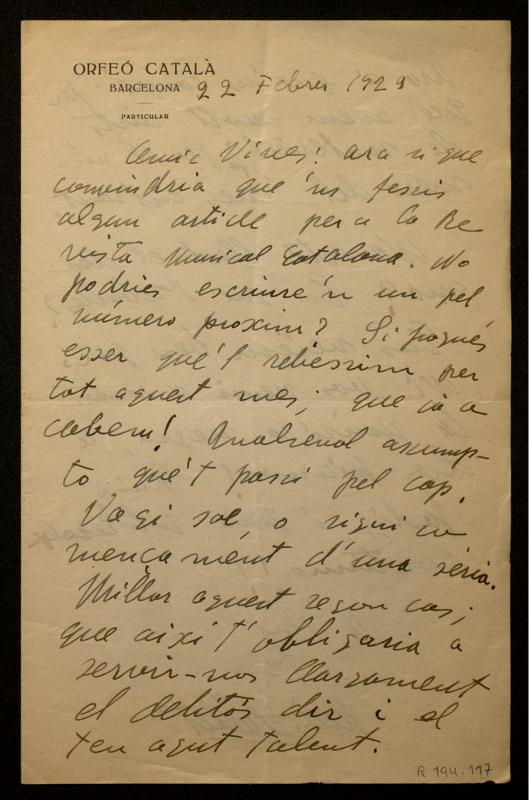 ORFEÓ CATALÀ
BARCELONA
PARTICULAR
22 Febrer 1929
Amic Vives: ara sí que
convindria que 'ns fessis
algun article per a la Re
vista Musical Catalana. No
podries escriure'n un pel
número proxim? Si pogués
esser que'l rebessim per
tot aquest mes; que ja a
cabem! Qualsevol assump-
to que't passi pel cap.
Vagi sol, o sigui co
mençament d'una sèria.
Millor aquest segon cas;
que així t'obligaria a
servir-nos llargament
el delitós dir i el
teu agut talent.
R 194.117